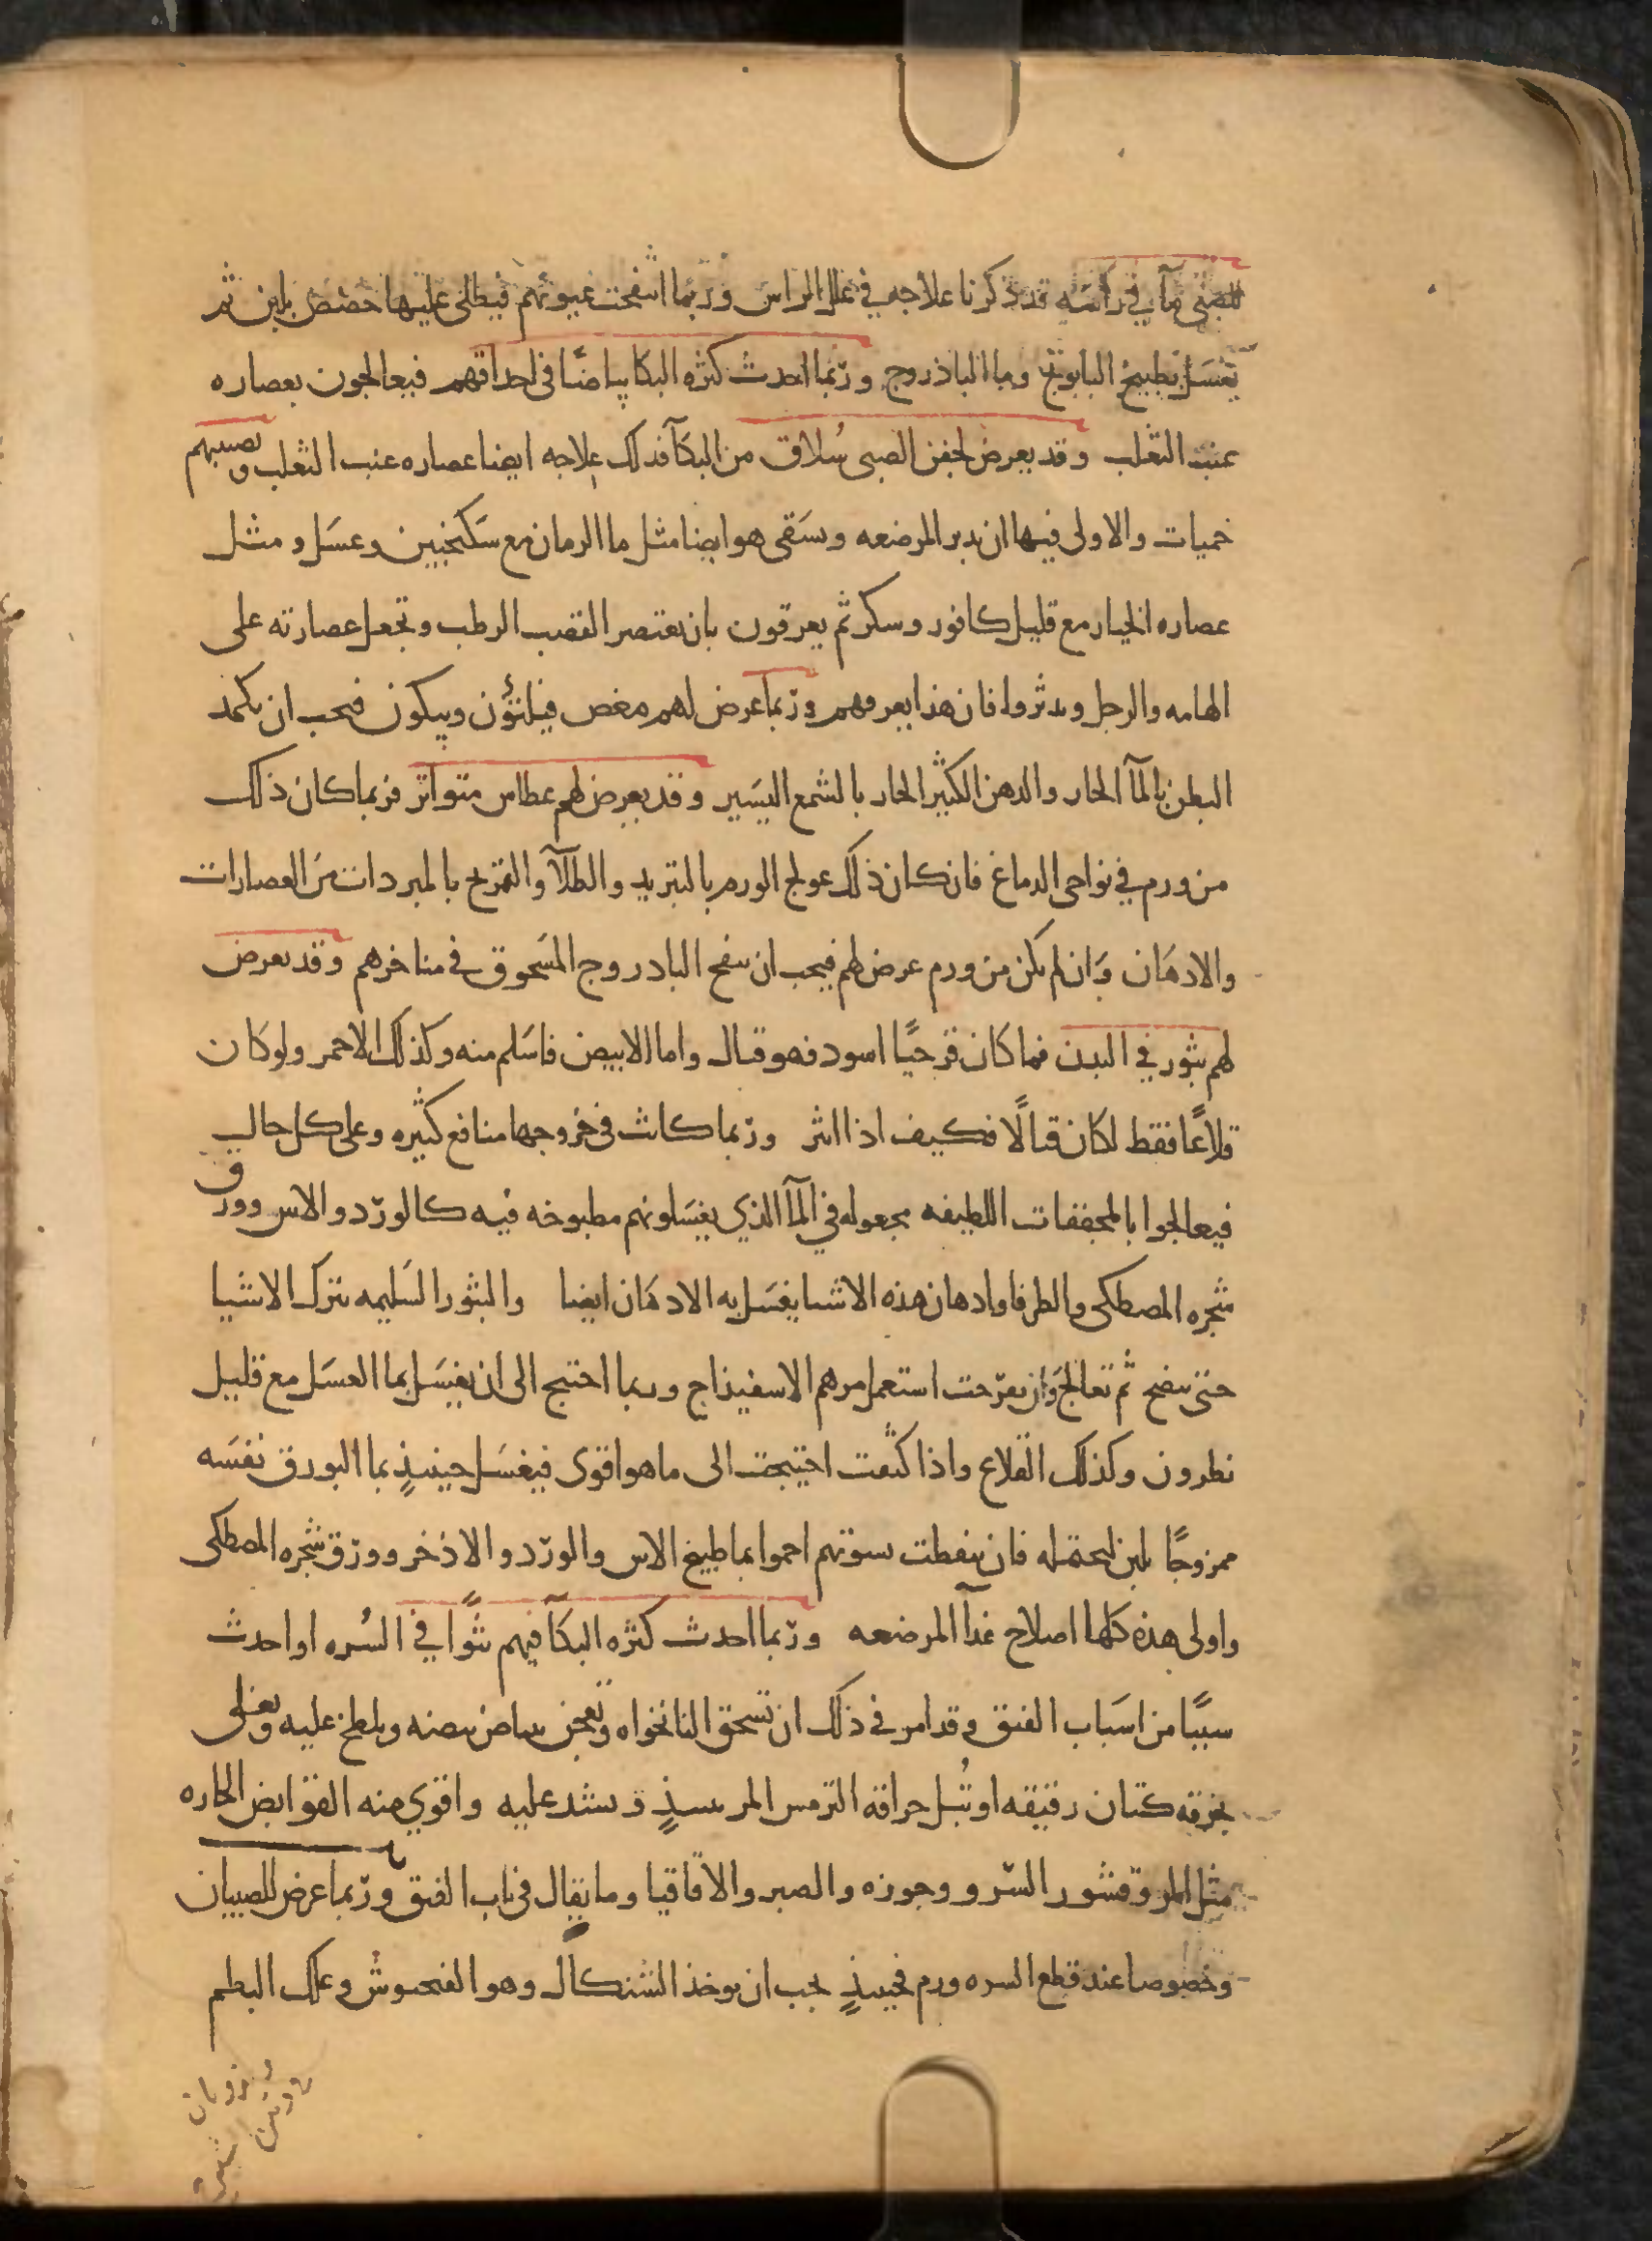 للصبى مآ في راسه قد ذكرنا علاجه في علل الراس وربما انتفخت عيونهم فيطلى عليها حضض بلبن ثم
يغسل بطبيخ البابونج وما الباذروج وربما احدث كثره البكا بياضا في احداقهم فيعالجون بعصاره
عنب الثعلب وقد يعرض لجفن الصبى سُلاق من البكآ فذلك علاجه ايضا عصاره عنب الثعلب وتصيبهم
حميات والاولى فيها ان تدبر المرضعه ويسَقى هو ايضا مثل ما الرمان مع سَكنجبين وعسَل ومثل
عصاره الخيار مع قليل كافور وسكر ثم يعرقون بان يعتصر القصب الرطب وتجعل عصارته على
الهامه والرجل ويدثروا فان هذا يعرقهم وربما عرض لهم مغص فيلتوٌن ويبكون فيجب ان يكمد
البطن بالمآ الحار والدهن الكثير الحار بالشمع اليسَير وقد يعرض لهم عطاس متواتر فربما كان ذلك
من ورم في نواحى الدماغ فان كان ذلك عولج الورم بالتبريد والطلآ والتمريخ بالمبردات من العصارات
والادهَان وَان لم يكن من ورم عرض لهم فيجب ان ينفخ الباذروج المسَحوق في مناخرهم وقد يعرض
لهم بثور في البدن فما كان قرحيًا اسود فهو قتال واما الابيض فاسَلم منه وكذلك الاحمر ولو كان
قلاعًا فقط لكان قتالًا فكيف اذا انثر وربما كانت في خروجها منافع كثيره وعلى كل حال
فيعالجوا بالمجففات اللطيفه مجعوله في المآ الذي يغسَلونهم مطبوخه فيه كالورد والاس وورق
شجره المصطكى والطرفا وادهان هذه الاشيا يغسَل به الادهَان ايضا والبثور السَليمه تترك الاشيا
حتى تنضج ثم تعالج وَان تقرحت استعمل مرهم الاسفيذاج وربما احتيج الى ان يغيسَل بما العسَل مع قليل
نطرون وكذلك القلاع واذا كثفت احتيجت الى ما هو اقوى فيغسَل حينيذٍ بما البورق نفسَه
ممزوجًا بلبن ليحتمله فان تنفطت بسوتهم احموا بما طبيخ الاس والورد والاذخر وورق شجره المصطكى
واولى هذه كلها اصلاح غذآ المرضعه وربما احدث كثره البكآ فيهم نتوًا في السُره او احدث
سببًا من اسَباب الفتق وقد امر في ذلك ان تسحق النانخواه وتعجن ببياض بيضه ويلطخ عليه وتعلى
بخرقه كتان رقيقه او تُبل حراقه الترمس المر بنبيذٍ وتشد عليه واقوي منه القوابض الحاره
مثل المر وقشور السرو وجوزه والصبر والاقاقيا وما يقال في باب الفتق وربما عرض للصبيان
وخصوصا عند قطع السره ورم فحينيذٍ يجب ان يوخذ الشنكال وهو الفنجيوش وعلك البطم